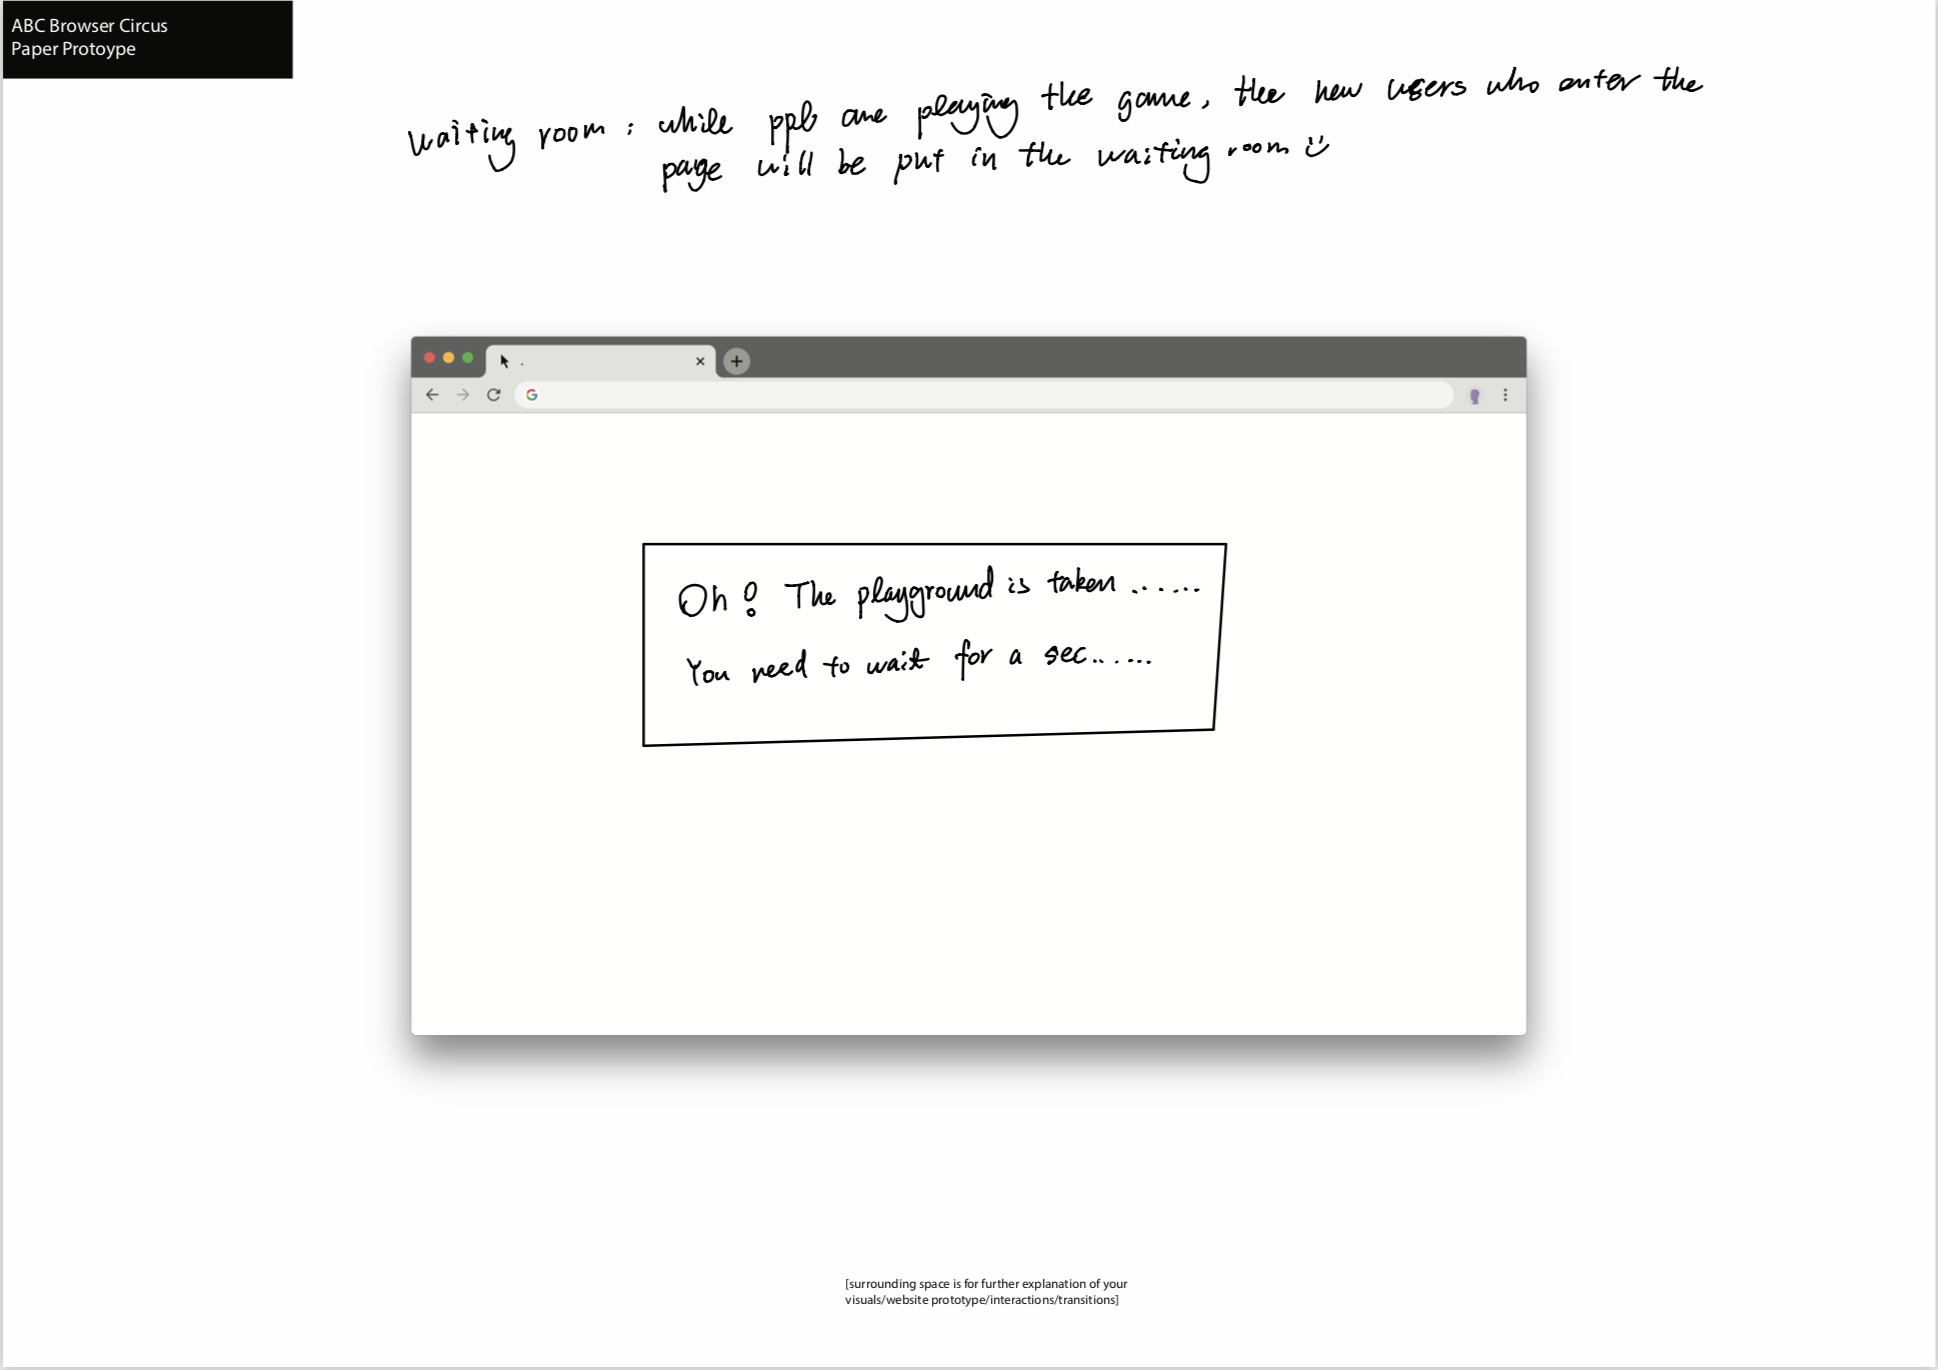 ABC Browser Circus
Paper Protoype
waiting room : while ppl are playing the game, the new users who enter the
page will be put in the waiting room
Oh! The playground is taken ......
You need to wait for a sec......
[surrounding space is for further explanation of your
visuals/website prototype/interactions/transitions]